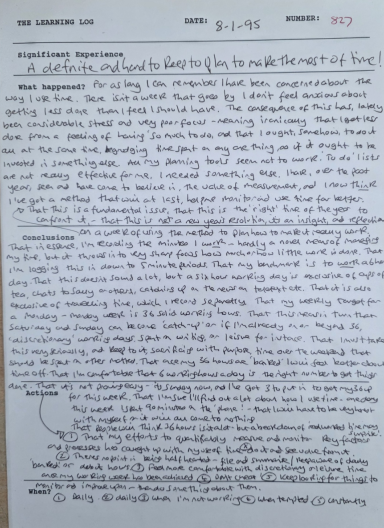 THE LEARNING LOG DATE: 8-1-95 NUMBER: 827
Significant Experience
A definite and hard to keep to plan to make the most of time!
What happened? For as long I can remember I have been concerned about the
way I use time. There isn't a week that goes by I don't feel anxious about
getting less done than I feel I should have. The consequence of this has, lately
been considerable stress and very poor focus - meaning ironically that I got less
done from a feeling of having so much to do, and that I ought, somehow, to do it
all at the same time, begrudging time spent on any one thing as if it ought to be
invested in something else. All my planning tools seem not to work. To do' lists
are not really effective for me. I needed something else. I have, over the past
year, seen and have come to believe in, the value of measurement, and I now think
I've got a method that will at last, help me monitor and use time far better.
That this is a fundamental issue, that this is the right time of the year to
confront it - that this is not a new years resolution, its an insight, and reflection
Conclusions on a week of using the method to plan how to make it really work.
That in essence, I'm recording the minutes I work - hardly a novel means of managing
my time, but it throws into very sharp focus how much or how little work is done. That
I'm logging this in down to 5 minute periods. That my benchmark is to work a 6 hour
day. That this doesn't sound a lot, but a six hour working day is exclusive of cups of
tea, chats to others, catching up on the news on etc. That it is also
exclusive of travelling time, which I record separately. That my weekly target for
a Monday - Monday week is 36 solid working hours. That this means in turn that
Saturday and Sunday can become 'catch-up' or if I'm already on or beyond 36,
'discretionary' working days, spent on writing or leisure for instance. That I must take
this very seriously, and keep to it
should be spent on other matters. That once my 36 hours are 'banked' I will feel better about
time off. That I'm comfortable that 6 working hours a day is the right number to get things
done. That it's not proving easy - its Sunday now, and I've got 5 to put in to get my 36
Actions for this week. That I'm sure I'll find out a lot about how I use time - one day
this week I spent 70 minutes on the 'phone! - that I will have to be very tough
with myself on what can come to nothing
① That my efforts to qualitatively measure and monitor key factors
and processes has caught up with my use of time
② There's no point in being half hearted - file and summarise / prepare
③ Feel more comfortable with discretionary or leisure time
once my working week has been achieved ④ Don't cheat ⑤ Keep looking for things to
monitor and improve upon - then do something about them.
When? ① Daily ② daily ③ when I'm not working ④ when tempted ⑤ constantly